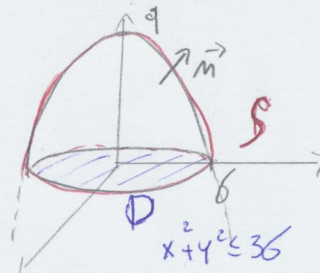 9
n⃗
S
6
D
x²+y²≤36